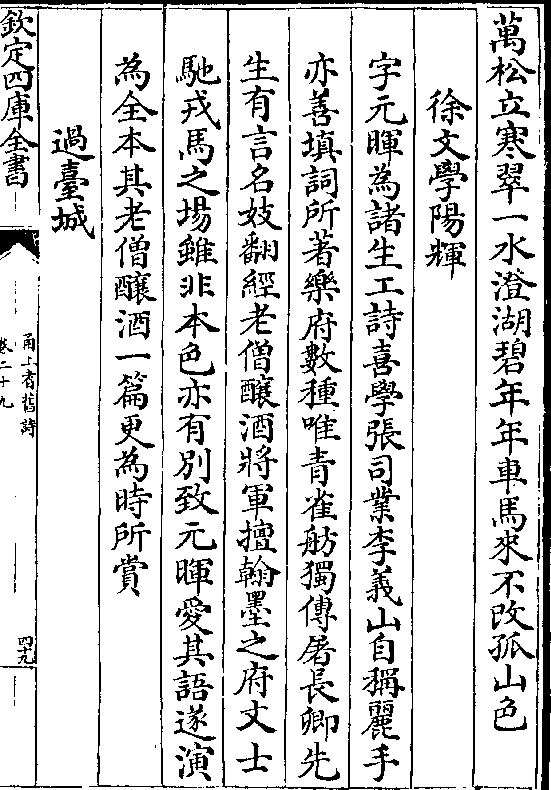 萬松立寒翠一水澄湖碧年年車馬來不改孤山色
徐文學陽輝
字元暉為諸生工詩喜學張司業李義山自稱麗手
亦善填詞所著樂府數種唯青雀舫獨傳屠長卿先
生有言名妓翻經老僧釀酒將軍擅翰墨之府文士
馳戎馬之場雖非本色亦有別致元暉愛其語遂演
為全本其老僧釀酒一篇更為時所賞
過臺城
欽定四庫全書
甬上耆舊詩
卷二十九
四十九